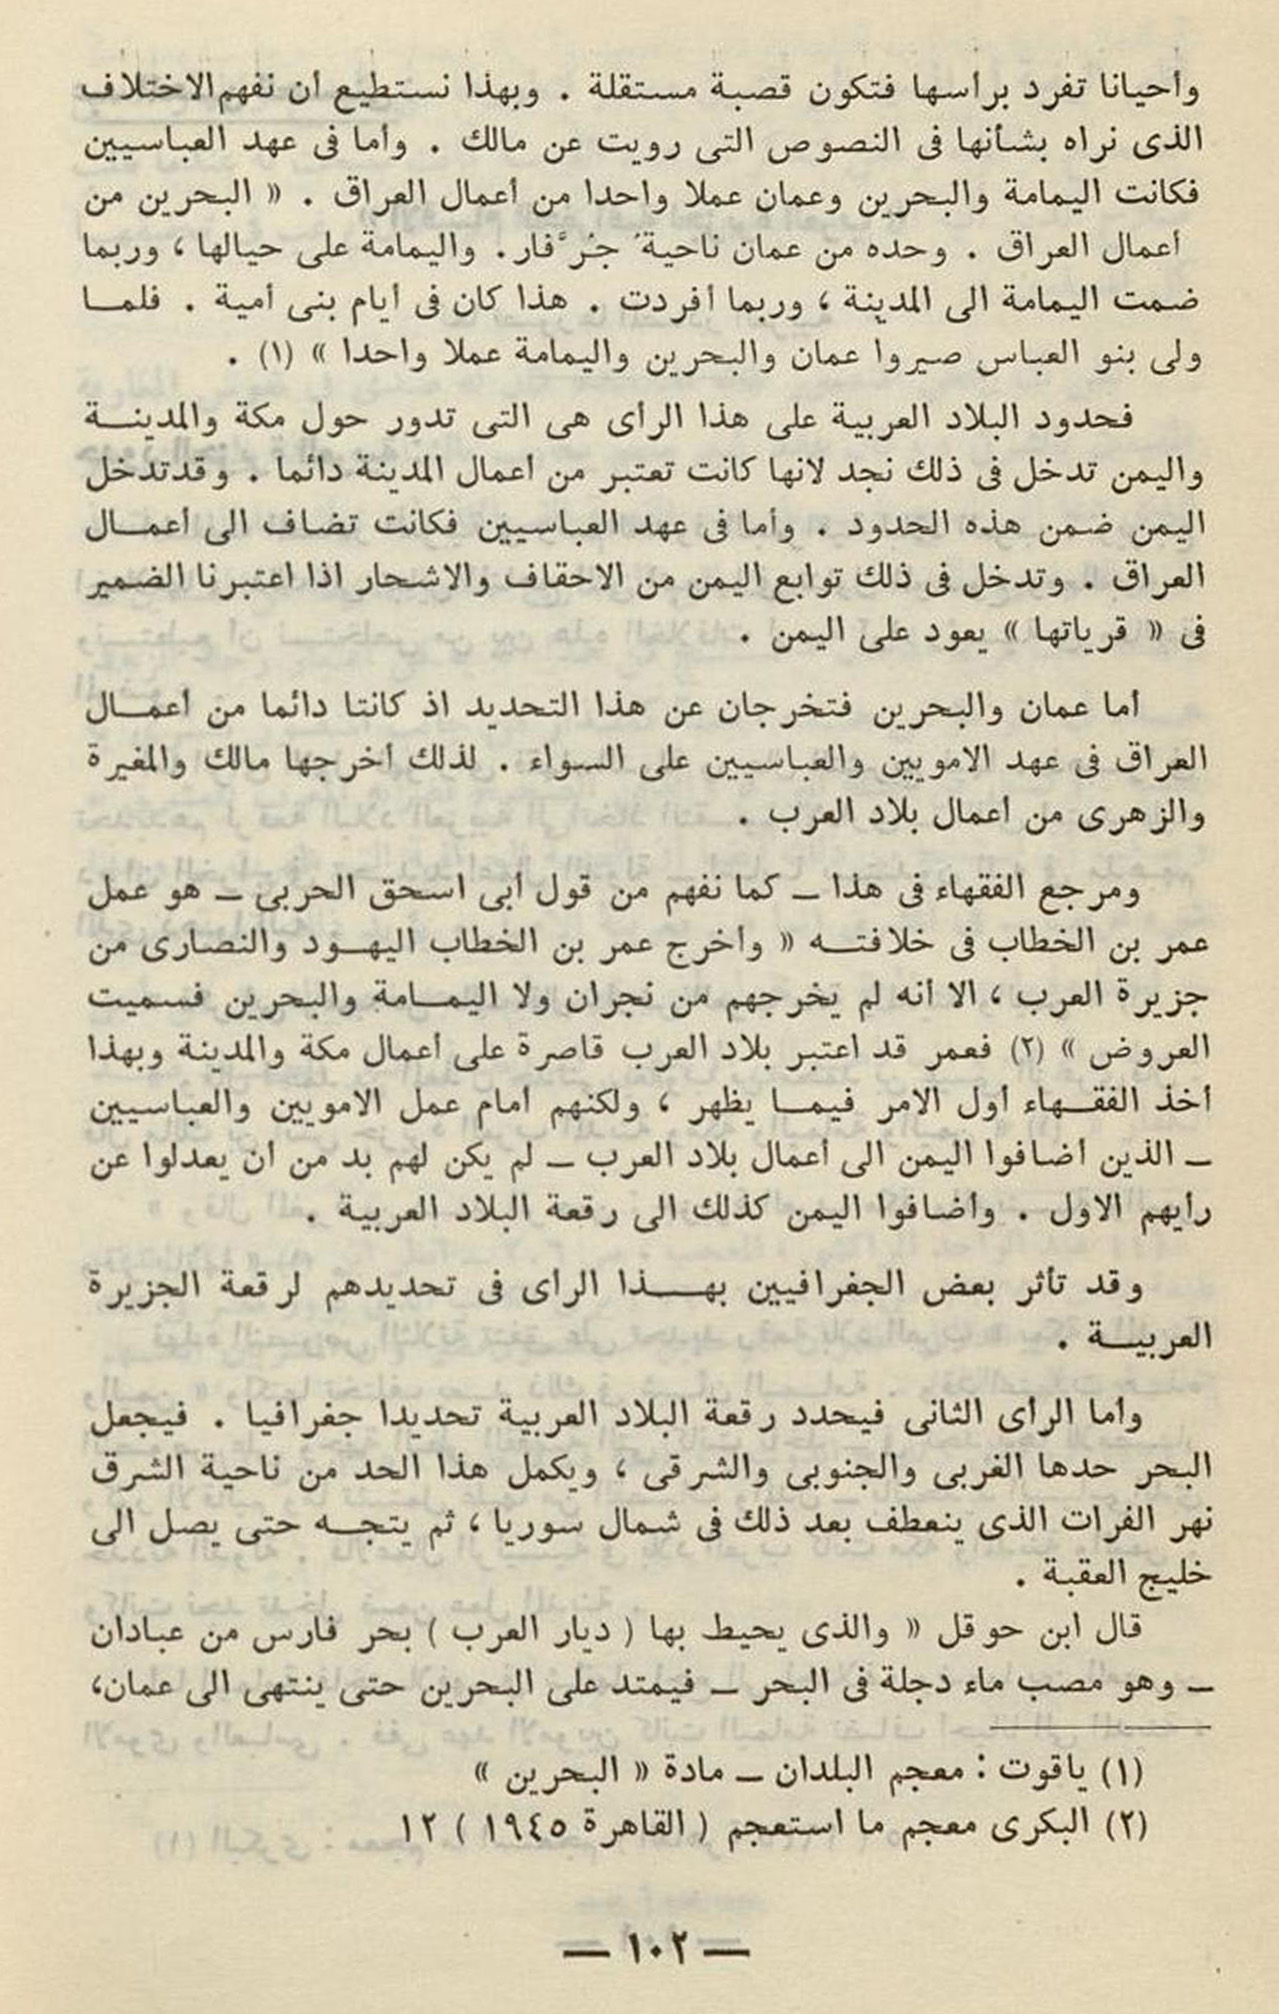 وأحيانا تفرد برأسها فتكون قصبة مستقلة . وبهذا نستطيع أن نفهم الاختلاف
الذى نراه بشأنها فى النصوص التى رويت عن مالك . وأما فى عهد العباسيين
فكانت اليمامة والبحرين وعمان عملا واحدا من أعمال العراق . « البحرين من
أعمال العراق . وحده من عمان ناحيةُ جُرَّفار . واليمامة على حيالها ، وربما
ضمت اليمامة الى المدينة ، وربما أفردت . هذا كان فى أيام بنى أمية . فلمـا
ولى بنو العباس صيروا عمان والبحرين واليمامة عملا واحدا » (١) .
فحدود البلاد العربية على هذا الرأى هى التى تدور حول مكة والمدينـة
واليمن تدخل فى ذلك نجد لانها كانت تعتبر من أعمال المدينة دائما . وقد تدخل
اليمن ضمن هذه الحدود . وأما فى عهد العباسيين فكانت تضاف الى أعمـال
العراق . وتدخل فى ذلك توابع اليمن من الاحقاف والاشحار اذا اعتبرنا الضمير
فى « قرياتها » يعود على اليمن .
أما عمان والبحرين فتخرجان عن هذا التحديد اذ كانتا دائما من أعمـال
العراق فى عهد الامويين والعباسيين على السواء . لذلك أخرجها مالك والمغيرة
والزهرى من أعمال بلاد العرب .
ومرجع الفقهاء فى هذا ـ كما نفهم من قول أبى اسحق الحربى ـ هو عمل
عمر بن الخطاب فى خلافتـه « وأخرج عمر بن الخطاب اليهـود والنصارى من
جزيرة العرب ، الا أنه لم يخرجهم من نجران ولا اليمـامة والبحرين فسميت
العروض » (٢) فعمر قد اعتبر بلاد العرب قاصرة على أعمال مكة والمدينة وبهذا
أخذ الفقـهاء أول الامر فيمـا يظهر ، ولكنهم أمام عمل الامويين والعباسيين
ـ الذين أضافوا اليمن الى أعمال بلاد العرب ـ لم يكن لهم بد من أن يعدلوا عن
رأيهم الاول . وأضافوا اليمن كذلك الى رقعة البلاد العربية .
وقد تأثر بعض الجغرافيين بهـذا الرأى فى تحديدهم لرقعة الجزيرة
العربيـة .
وأما الرأى الثانى فيحدد رقعة البلاد العربية تحديدا جغرافيا . فيجعل
البحر حدها الغربى والجنوبى والشرقى ، ويكمل هذا الحد من ناحية الشرق
نهر الفرات الذى ينعطف بعد ذلك فى شمال سوريا ، ثم يتجـه حتى يصل الى
خليج العقبة .
قال ابن حوقل « والذى يحيط بها ( ديار العرب ) بحر فارس من عبادان
ـ وهو مصب ماء دجلة فى البحر ـ فيمتد على البحرين حتى ينتهى الى عمان،
(١) ياقوت : معجم البلدان ـ مادة « البحرين »
(٢) البكرى معجم ما استعجم ( القاهرة ١٩٤٥ ) ١٢
— ١٠٢ —